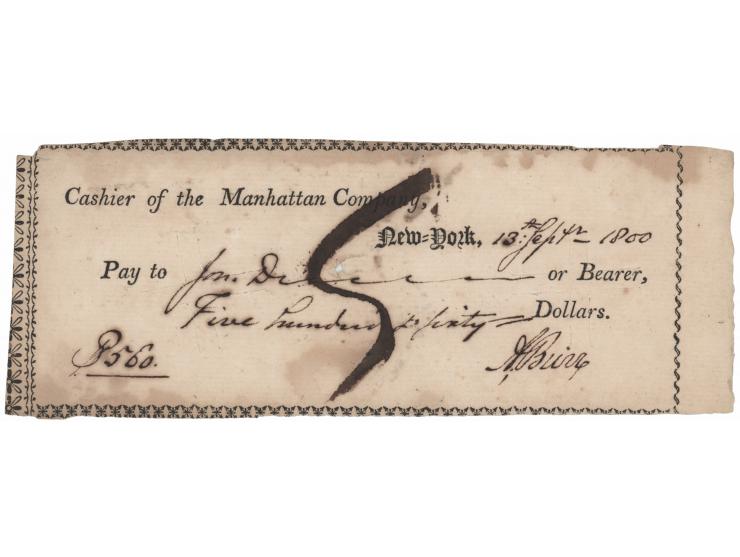 Cashier of the Manhattan Company,
New-York, 13th Septr 1800
Pay to Jon. or Bearer,
Five hundred & sixty Dollars.
$560. A Burr